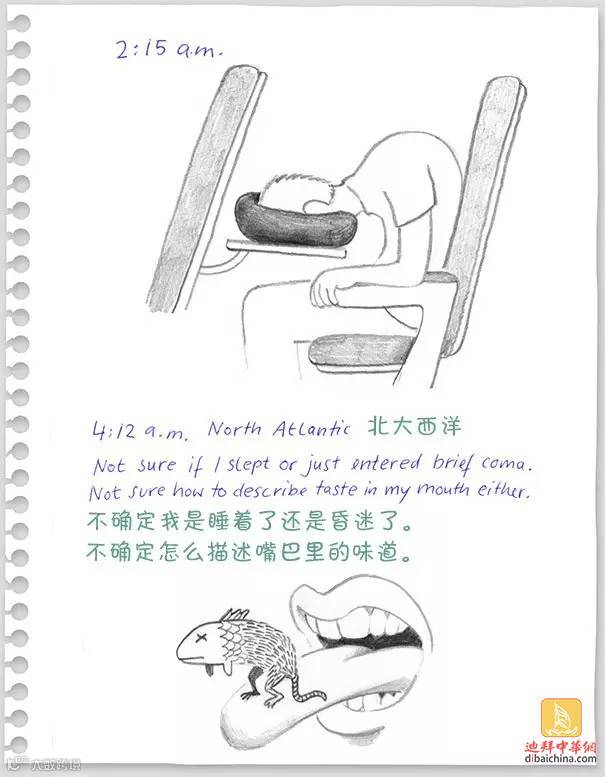 2:15 a.m.
4:12 a.m. North Atlantic 北大西洋
Not sure if I slept or just entered brief coma.
Not sure how to describe taste in my mouth either.
不确定我是睡着了还是昏迷了。
不确定怎么描述嘴巴里的味道。
迪拜中華網
dibaichina.com